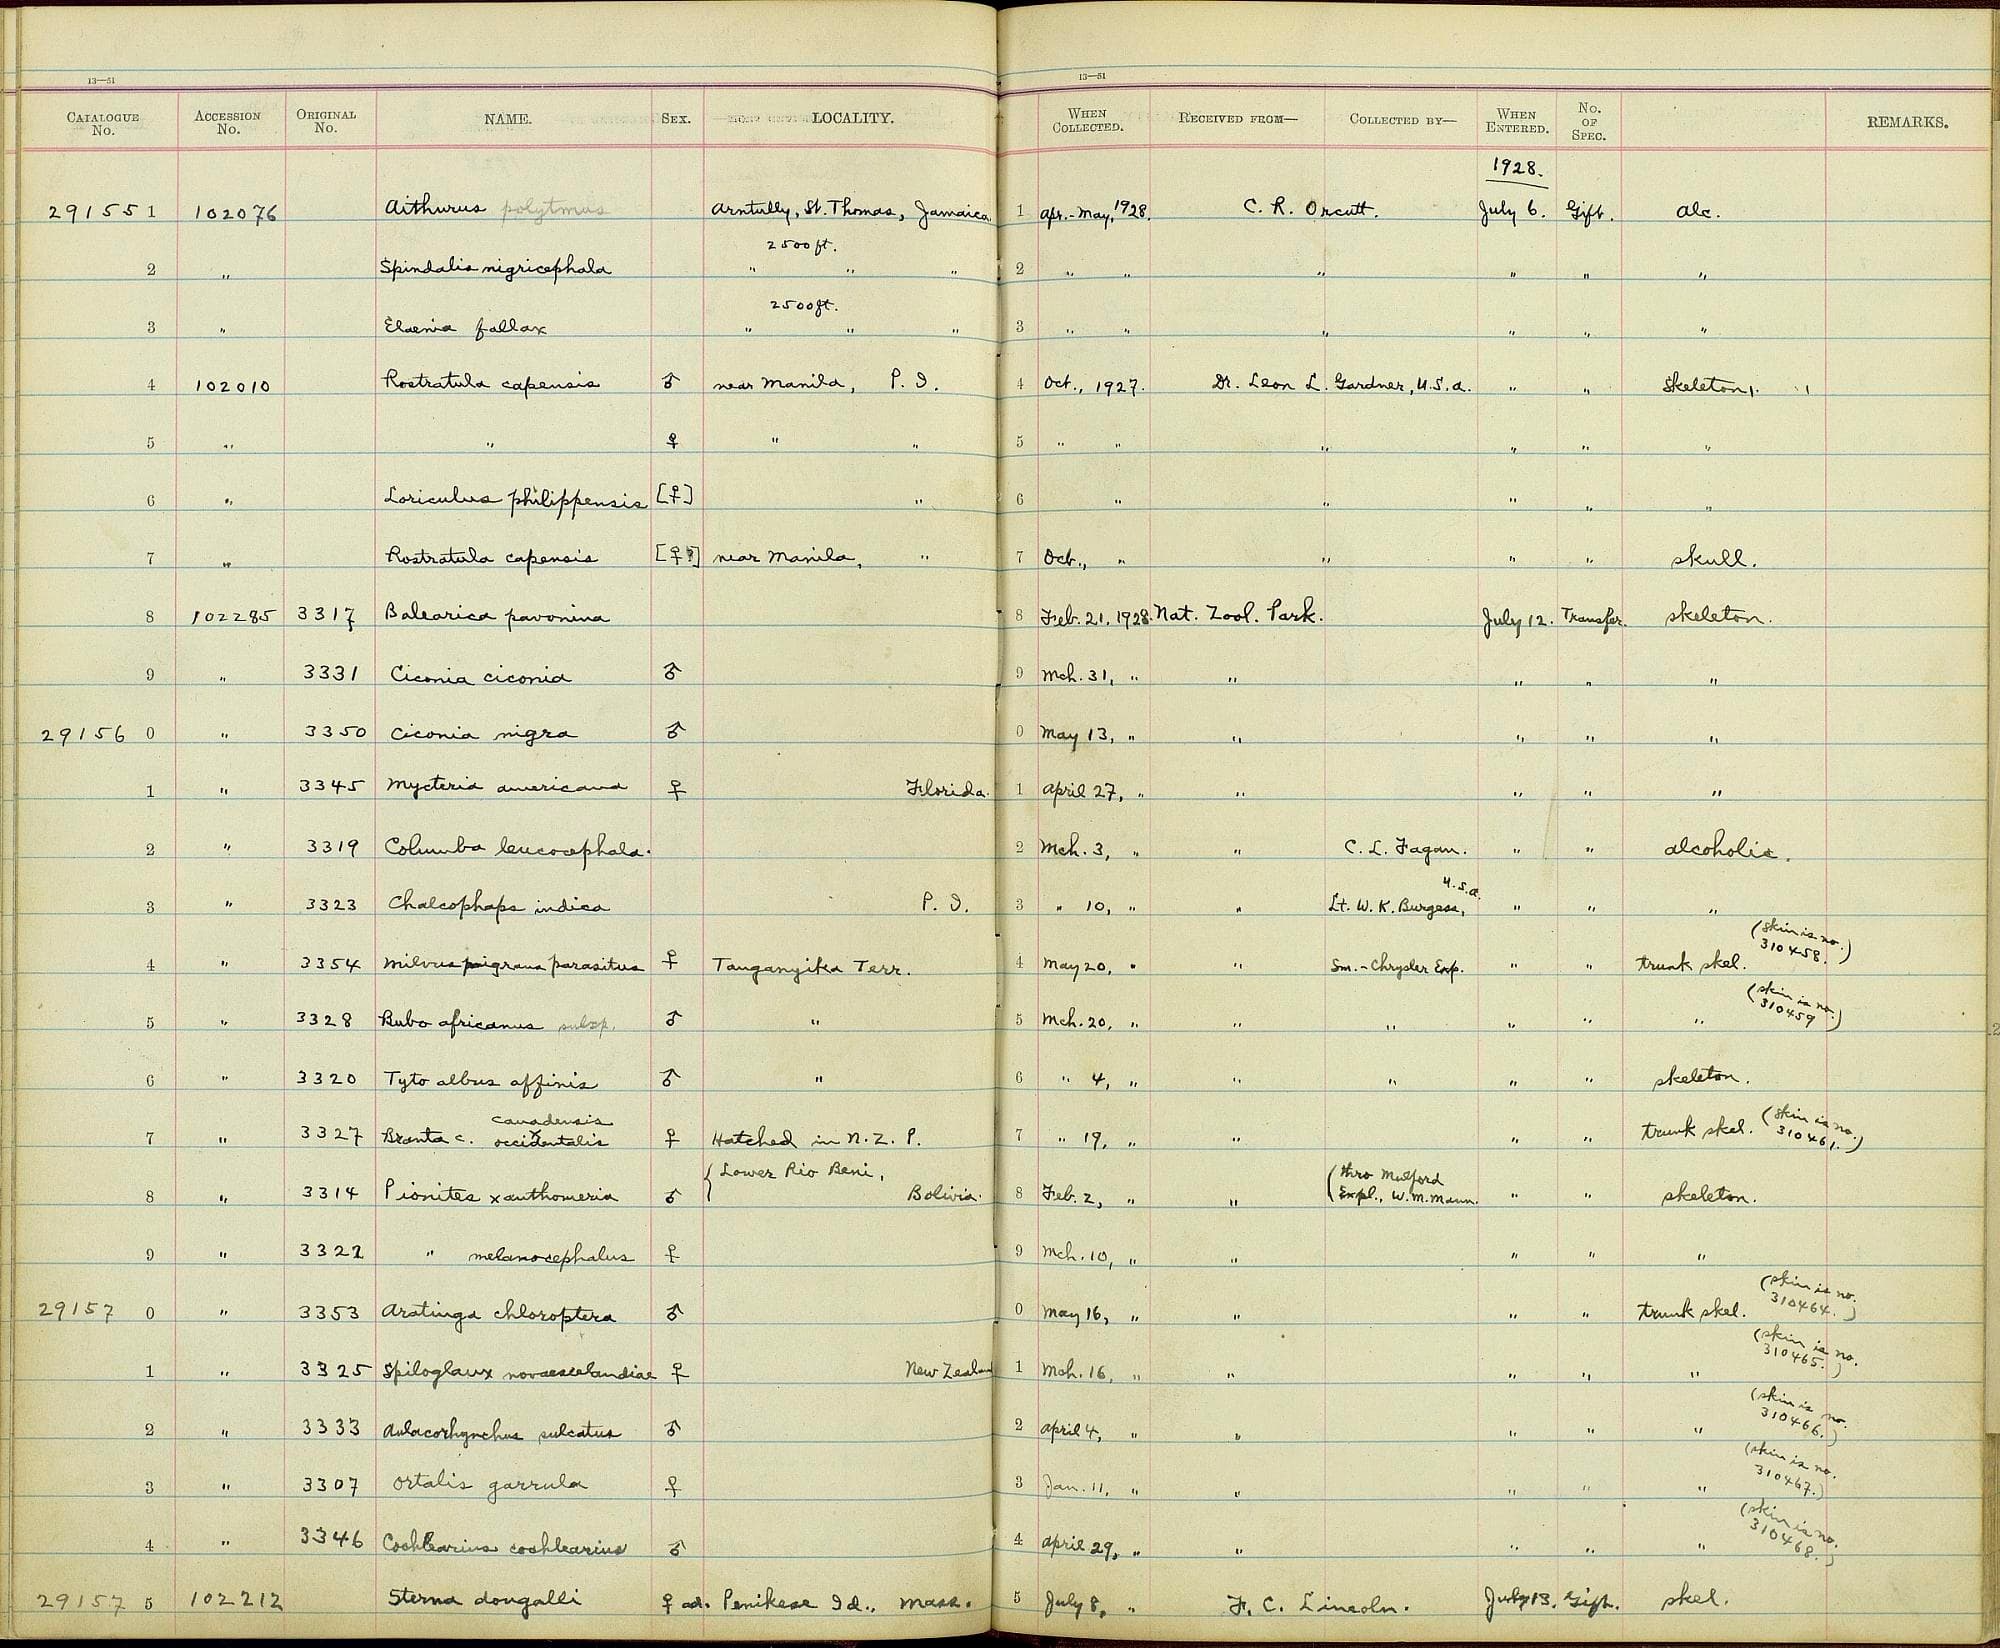 13—51 13—51
CATALOGUE No. ACCESSION No. ORIGINAL No. NAME. SEX. LOCALITY. WHEN COLLECTED. RECEIVED FROM— COLLECTED BY— WHEN ENTERED. No. OF SPEC. REMARKS.
1928.
29155 1 102076 Aithurus polytmus Arntully, St. Thomas, Jamaica 1 Apr.-May, 1928. C. R. Orcutt. July 6. Gift. Alc.
2500 ft.
2 " Spindalis nigricephala " " " 2 " " " " " "
2500 ft.
3 " Elaenia fallax " " " 3 " " " " " "
4 102010 Rostratula capensis ♂ near Manila, P. I. 4 Oct., 1927. Dr. Leon L. Gardner, U.S.A. " " Skeleton
5 " " ♀ " " 5 " " " " " "
6 " Loriculus philippensis [♀] " 6 " " " " "
7 " Rostratula capensis [♀?] near Manila, " 7 Oct., " " " " skull.
8 102285 3317 Balearica pavonina 8 Feb. 21, 1928. Nat. Zool. Park. July 12. Transfer. skeleton.
9 " 3331 Ciconia ciconia ♂ 9 Mch. 31, " " " " "
29156 0 " 3350 Ciconia nigra ♂ 0 May 13, " " " " "
1 " 3345 Mycteria americana ♀ Florida. 1 April 27, " " " " "
2 " 3319 Columba leucocephala. 2 Mch. 3, " " C. L. Fagan. " " alcoholic.
3 " 3323 Chalcophaps indica P. I. 3 " 10, " " Lt. W. K. Burgess, U.S.A. " " "
4 " 3354 Milvus migrans parasitus ♀ Tanganyika Terr. 4 May 20, " " Sm.-Chrysler Exp. " " trunk skel. (skin is no. 310458.)
5 " 3328 Bubo africanus subsp. ♂ " 5 Mch. 20, " " " " " " (skin is no. 310459)
6 " 3320 Tyto albus affinis ♂ " 6 " 4, " " " " " skeleton.
canadensis
7 " 3327 Branta c. occidentalis ♀ Hatched in N. Z. P. 7 " 19, " " " " trunk skel. (skin is no. 310461.)
8 " 3314 Pionites xanthomeria ♂ {Lower Rio Beni, Bolivia. 8 Feb. 2, " " (thro Mulford Expl., W. M. Mann. " " skeleton.
9 " 3322 " melanocephalus ♀ 9 Mch. 10, " " " " "
29157 0 " 3353 Aratinga chloroptera ♂ 0 May 16, " " " " trunk skel. (skin is no. 310464.)
1 " 3325 Spiloglaux novaeseelandiae ♀ New Zealand 1 Mch. 16, " " " " " (skin is no. 310465.)
2 " 3333 Aulacorhynchus sulcatus ♂ 2 April 4, " " " " " (skin is no. 310466.)
3 " 3307 Ortalis garrula ♀ 3 Jan. 11, " " " " " (skin is no. 310467.)
4 " 3346 Cochlearius cochlearius ♂ 4 April 29, " " " " " (skin is no. 310468.)
29157 5 102212 Sterna dougalli ♀ ad. Penikese Id., Mass. 5 July 8, " F. C. Lincoln. July 13. Gift. skel.